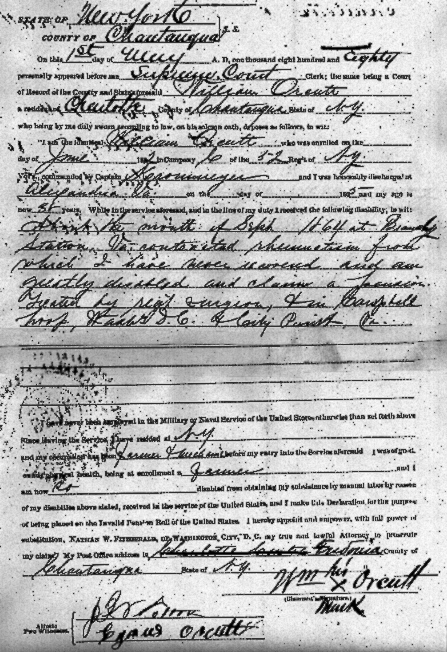 STATE OF New York
COUNTY OF Chautauqua } S.S.
On this 1st day of May A. D., one thousand eight hundred and Eighty
personally appeared before me Supreme Court Clerk; the same being a Court
of Record of the County and State aforesaid William Orcutt
a resident of Charlotte County of Chautauqua State of NY.
who being by me duly sworn according to law, on his solemn oath, deposes as follows, to wit:
"I am the identical William Orcutt who was enrolled on the
day of June in Company of the Reg't of NY
Vol's commanded by Captain and I was honorably discharged at
Alexandria Va on the day of and my age is
now years. While in the service aforesaid, and in the line of my duty I received the following disability, to wit:
About the month of Sept 1864 at Brandy
Station, Va. contracted rheumatism from
which I have never recovered and am
greatly disabled and claims a pension.
Treated by reg't surgeon, & in Campbell
hosp, Wash. D.C. & City Point Va.
I have never been employed in the Military or Naval Service of the United States, otherwise than set forth above
Since leaving the Service I have resided at NY.
and my occupation has been farmer & before my entry into the Service aforesaid I was of good,
physical health, being at enrollment a farmer and I
am now disabled from obtaining my subsistence by manual labor by reason
of my disabilities above stated, received in the service of the United States, and I make this Declaration for the purpose
of being placed on the Invalid Pension Roll of the United States. I hereby appoint and empower, with full power of
substitution, NATHAN W. FITZGERALD, OF WASHINGTON CITY, D. C. my true and lawful Attorney to prosecute
my claim. My Post Office address is Fredonia County of
Chautauqua State of N.Y.
Wm his X Orcutt
(Claimant's Signature.) mark
Attest:
Two Witnesses.
Cyrus Orcutt